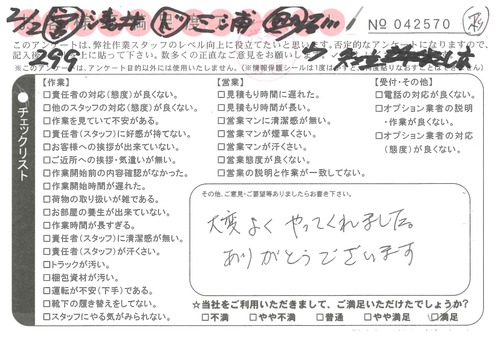 2/2 浅井 三浦
№ 042570
このアンケートは、弊社作業スタッフのレベル向上に役立てたいと思います。否定的なアンケートになりますので、
※このアンケートは、アンケート目的以外には使用いたしません。
チェックリスト
【作業】
□責任者の対応(態度)が良くない。
□他のスタッフの対応(態度)が良くない。
□作業を見ていて不安がある。
□責任者(スタッフ)に好感が持てない。
□お客様への挨拶が出来ていない。
□ご近所への挨拶・気遣いが無い。
□作業開始前の内容確認がなかった。
□作業開始時間が遅れた。
□荷物の取り扱いが雑である。
□お部屋の養生が出来ていない。
□作業時間が長すぎる。
□責任者(スタッフ)に清潔感が無い。
□責任者(スタッフ)が汗くさい。
□トラックが汚い。
□梱包資材が汚い。
□運転が不安(下手)である。
□靴下の履き替えをしてない。
□スタッフにやる気がみられない。
【営業】
□見積もり時間に遅れた。
□見積もり時間が長い。
□営業マンに清潔感が無い。
□営業マンが煙草くさい。
□営業マンが汗くさい。
□営業態度が良くない。
□営業の説明と作業が一致してない。
【受付・その他】
□電話の対応が良くない。
□オプション業者の説明
・作業が良くない。
□オプション業者の対応
(態度)が良くない。
その他、ご意見・ご要望等ありましたらお書き下さい。
大変よくやってくれました。
ありがとうございます
☆当社をご利用いただきまして、ご満足いただけたでしょうか?
□不満 □やや不満 □普通 □やや満足 □満足